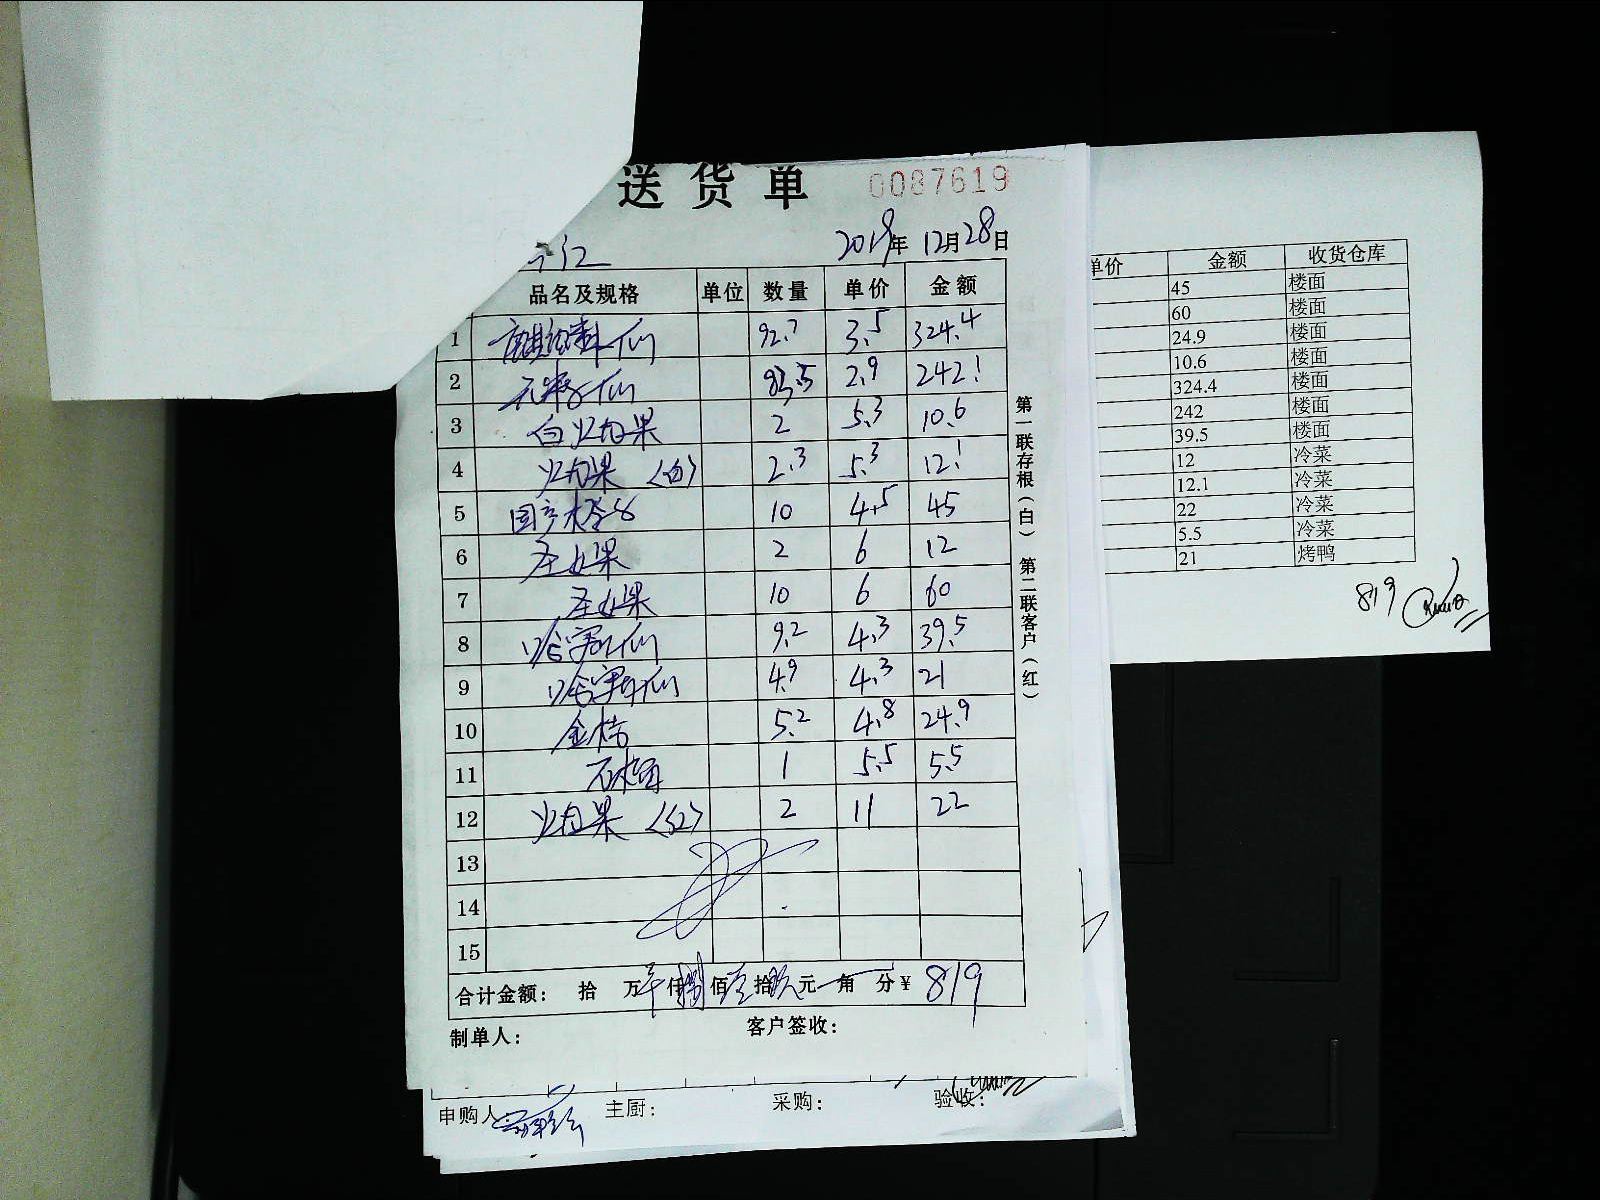 送货单 0087619
2019年12月28日
品名及规格 单位 数量 单价 金额
1 92.7 3.5 324.4
2 无籽 83.5 2.9 242!
3 白火龙果 2 5.3 10.6
4 火龙果(白) 2.3 5.3 12!
5 国产橙 10 4.5 45
6 圣女果 2 6 12
7 圣女果 10 6 60
8 哈密瓜 9.2 4.3 39.5
9 哈密瓜 4.9 4.3 21
10 金桔 5.2 4.8 24.9
11 石榴 1 5.5 5.5
12 火龙果(红) 2 11 22
13
14
15
合计金额: 拾 万 仟捌佰壹拾玖元 角 分¥ 819
制单人: 客户签收:
第一联存根(白) 第二联客户(红)
申购人 主厨: 采购: 验收:
单价 金额 收货仓库
45 楼面
60 楼面
24.9 楼面
10.6 楼面
324.4 楼面
242 楼面
39.5 楼面
12 冷菜
12.1 冷菜
22 冷菜
5.5 冷菜
21 烤鸭
819